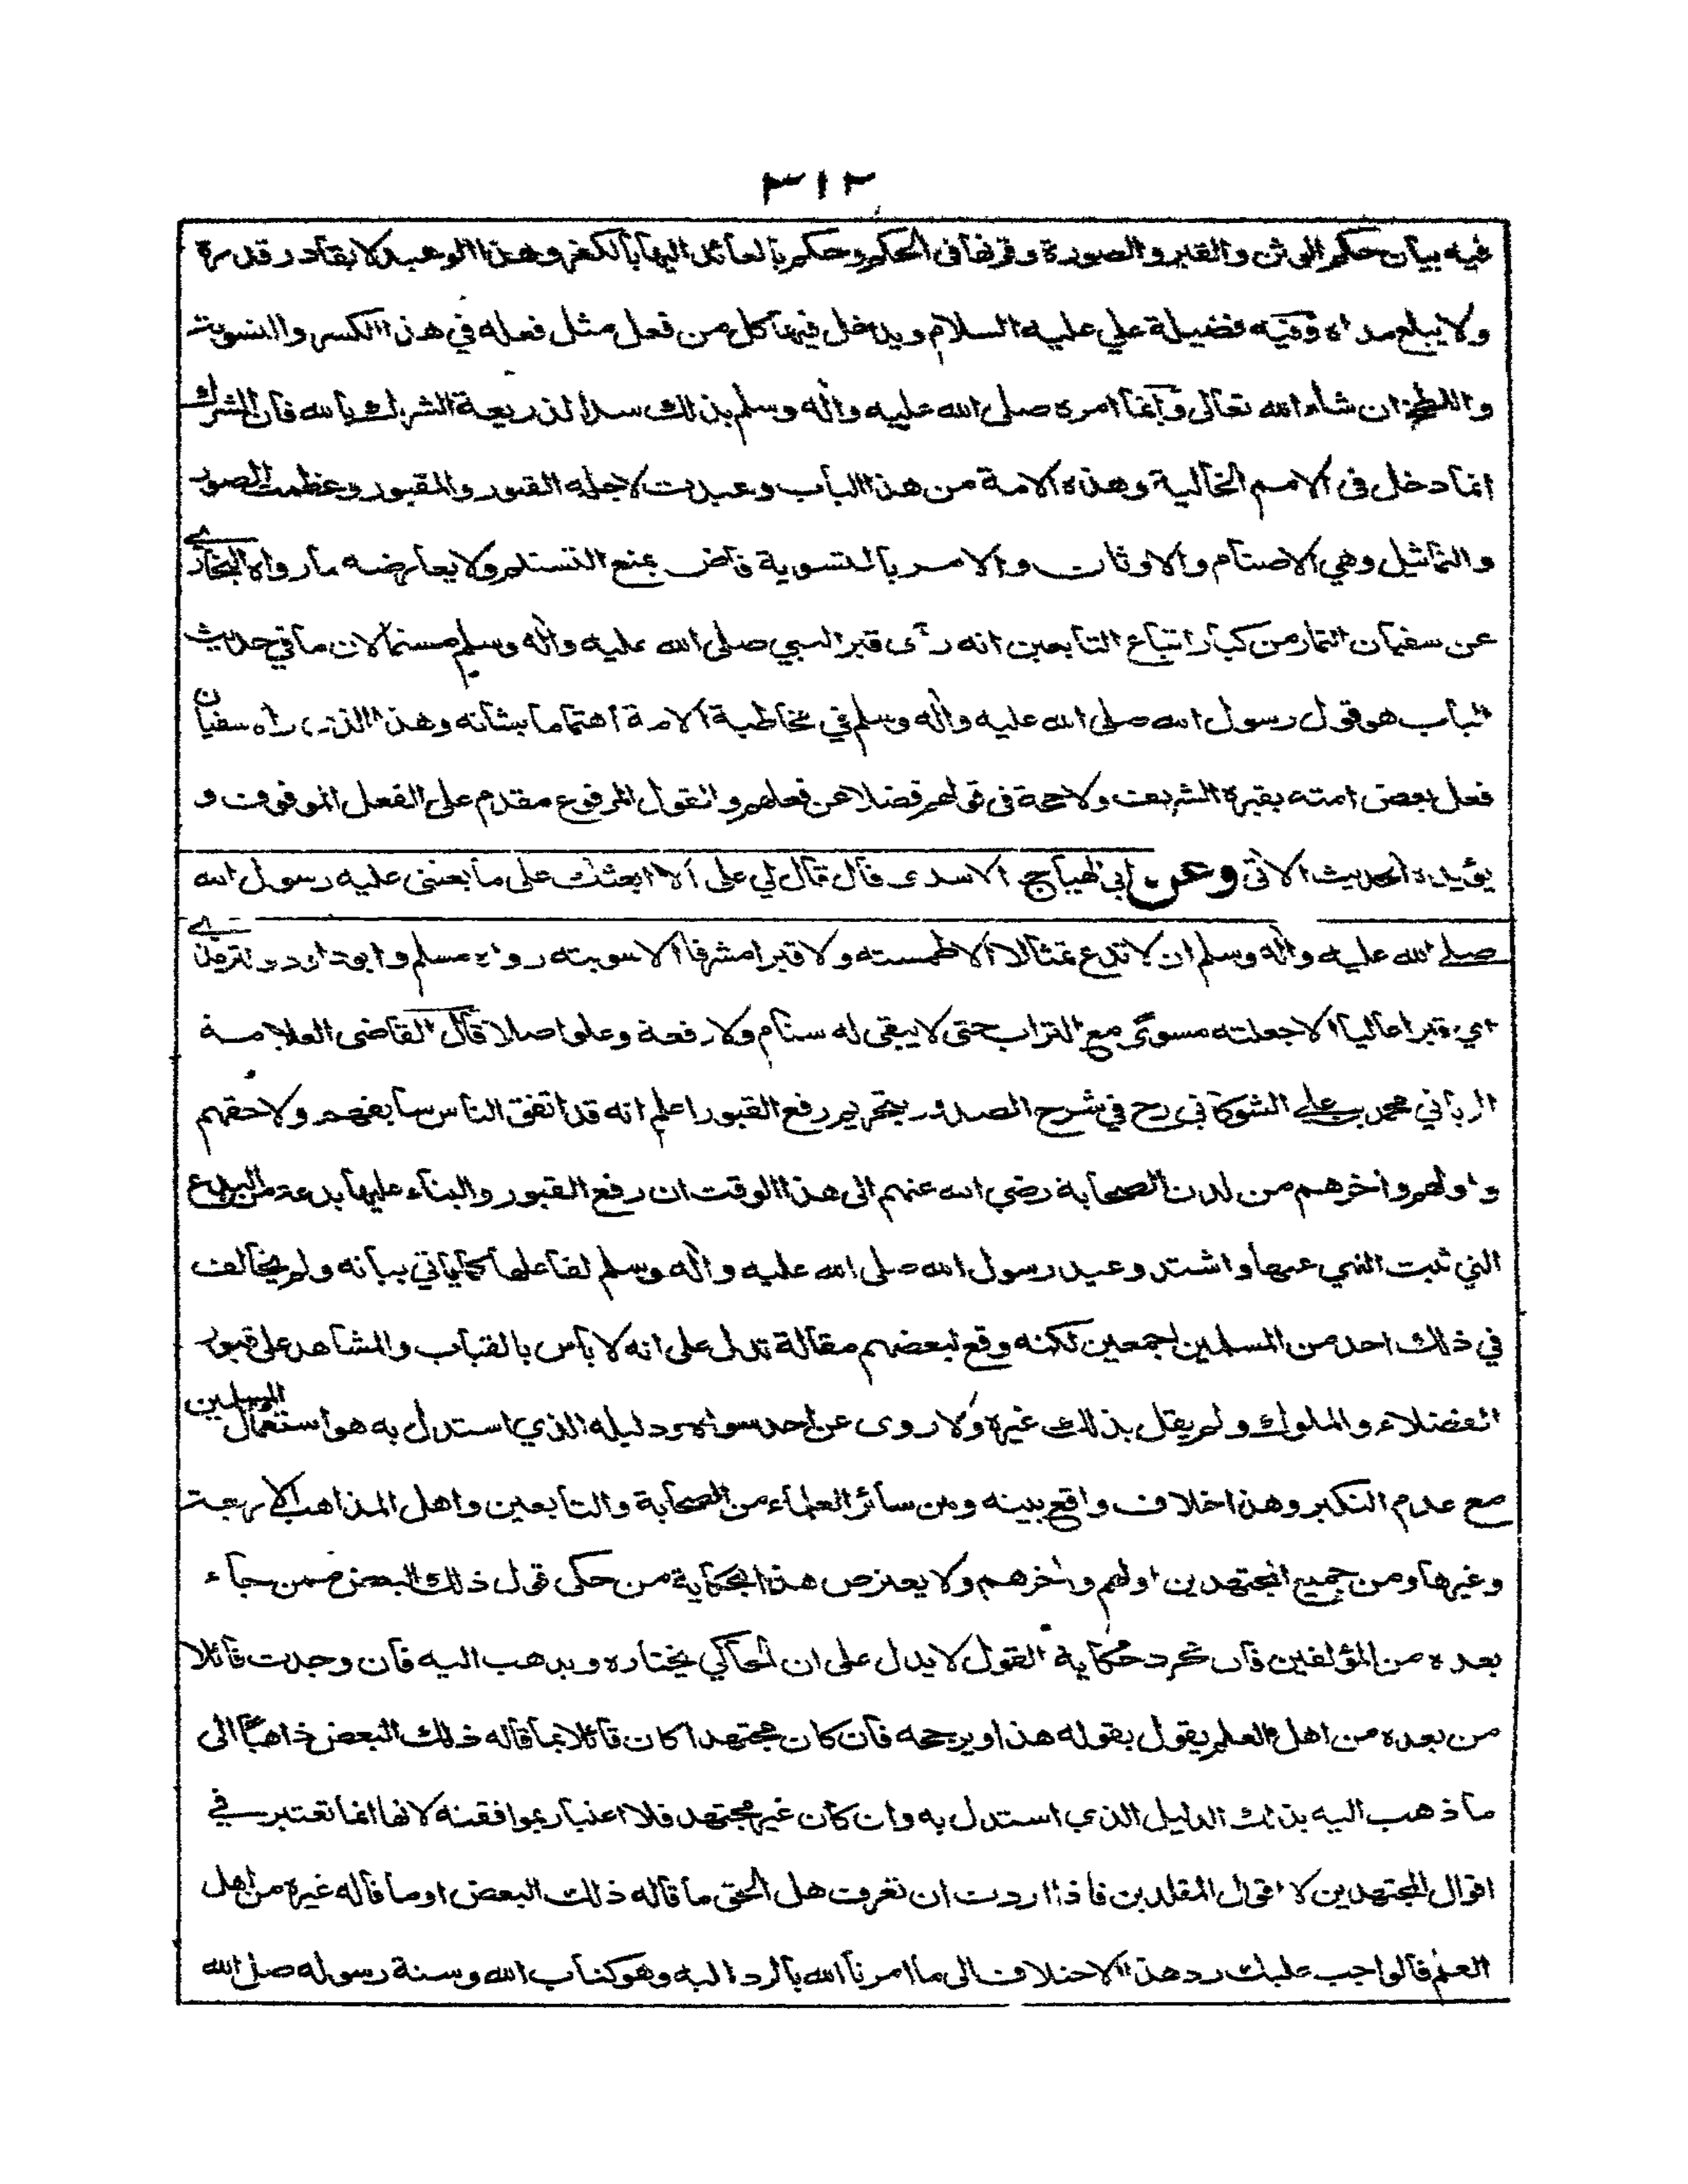 ٣١٢
فيه بيان حكم الوثن والقبر والصورة وقرنها في الحكم وحكم بالعائد اليها بالكفر وهذا الوعيد لا يقادر قدره
ولا يبلغ مداه وفيه فضيلة علي عليه السلام ويدخل فيها كل من فعل مثل فعله في هذا الكسر والتسوية
واللطخ ان شاء الله تعالى وانما امره صلى الله عليه وآله وسلم بذلك سدا لذريعة الشرك بالله فان الشرك
انما دخل في الامم الخالية وهذه الامة من هذا الباب وعبدت لاجله القبور والمقبور وعظمت الصور
والتماثيل وهي الاصنام والاوثان والامر بالتسوية قاض بمنع التسنيم ولا يعارضه ما رواه البخاري
عن سفيان التمار من كبار اتباع التابعين انه رأى قبر النبي صلى الله عليه وآله وسلم مسنما لان ما في حديث
الباب هو قول رسول الله صلى الله عليه وآله وسلم في مخاطبة الامة اهتماما بشأنه وهذا الذي رآه سفيان
فعل بعض امته بقبره الشريف ولا حجة في قولهم فضلا عن فعلهم والقول المرفوع مقدم على الفعل الموقوف و
يؤيده الحديث الآتي وعن ابي الهياج الاسدي قال قال لي علي الا ابعثك على ما بعثني عليه رسول الله
صلى الله عليه وآله وسلم ان لا تدع تمثالا الا طمسته ولا قبرا مشرفا الا سويته رواه مسلم وابو داود والترمذي
اي قبرا عاليا الا جعلته مسوى مع التراب حتى لا يبقى له سنام ولا رفعة وعلو اصلا قال القاضي العلامة
الرباني محمد بن علي الشوكاني رح في شرح الصدور بتحريم رفع القبور اعلم انه قد اتفق الناس سابقهم ولاحقهم
واولهم وآخرهم من لدن الصحابة رضي الله عنهم الى هذا الوقت ان رفع القبور والبناء عليها بدعة من البدع
التي ثبت النهي عنها واشتد وعيد رسول الله صلى الله عليه وآله وسلم لفاعلها كما يأتي بيانه ولم يخالف
في ذلك احد من المسلمين اجمعين لكنه وقع لبعضهم مقالة تدل على انه لا بأس بالقباب والمشاهد على قبور
الفضلاء والملوك ولم يقل بذلك غيره ولا روى عن احد سواه ودليله الذي استدل به هو استعمال المسلمين
مع عدم النكير وهذا خلاف واقع بينه وبين سائر العلماء من الصحابة والتابعين واهل المذاهب الاربعة
وغيرها ومن جميع المجتهدين اولهم وآخرهم ولا يعترض هذا بحكاية من حكى قول ذلك البعض ممن جاء
بعده من المؤلفين فان مجرد حكاية القول لا يدل على ان الحاكي يختاره ويذهب اليه فان وجدت قائلا
من بعده من اهل العلم يقول بقوله هذا او يرجحه فان كان مجتهدا كان قائلا بما قاله ذلك البعض ذاهبا الى
ما ذهب اليه بذلك الدليل الذي استدل به وان كان غير مجتهد فلا اعتبار بموافقته لانها انما تعتبر في
اقوال المجتهدين لا اقوال المقلدين فاذا اردت ان تعرف هل الحق ما قاله ذلك البعض او ما قاله غيره من اهل
العلم فالواجب عليك رد هذا الاختلاف الى ما امرنا الله بالرد اليه وهو كتاب الله وسنة رسوله صلى الله